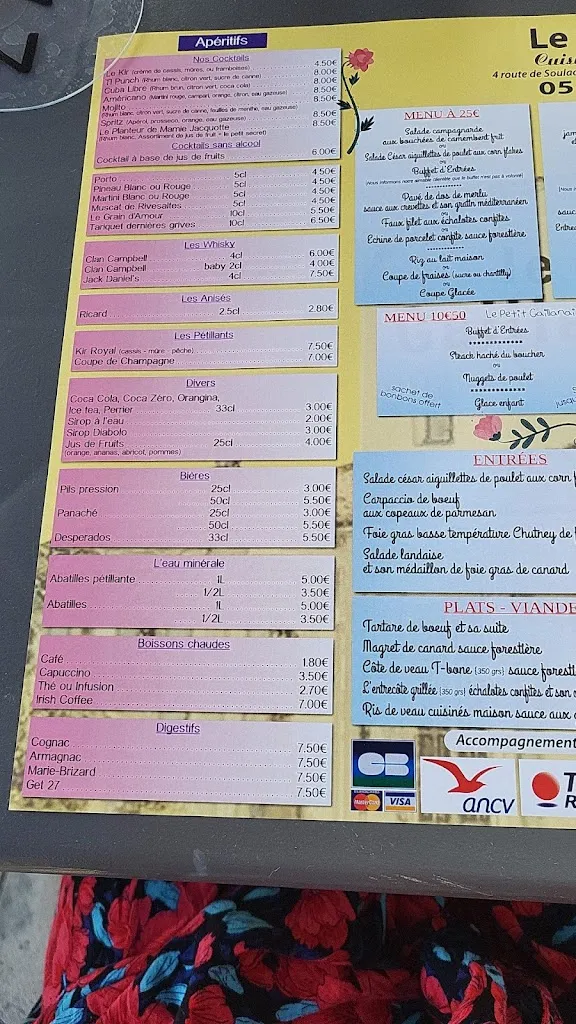 Apéritifs
Nos Cocktails
Le Kir (crème de cassis, mûres, ou framboises) 4.50€
Ti Punch (Rhum blanc, citron vert, sucre de canne) 8.00€
Cuba Libre (Rhum brun, citron vert, coca cola) 8.00€
Américano (Martini rouge, campari, orange, citron, eau gazeuse) 8.50€
Mojito 8.50€
(Rhum blanc, citron vert, sucre de canne, feuilles de menthe, eau gazeuse)
Spritz (Apérol, prosseco, orange, eau gazeuse) 8.50€
Le Planteur de Mamie Jacquotte 8.50€
(Rhum blanc, Assortiment de jus de fruit + le petit secret)
Cocktails sans alcool
Cocktail à base de jus de fruits 6.00€
Porto 5cl 4.50€
Pineau Blanc ou Rouge 5cl 4.50€
Martini Blanc ou Rouge 5cl 4.50€
Muscat de Rivesaltes 5cl 4.50€
Le Grain d'Amour 10cl 5.50€
Tariquet dernières grives 10cl 6.50€
Les Whisky
Clan Campbell 4cl 6.00€
Clan Campbell baby 2cl 4.00€
Jack Daniel's 4cl 7.50€
Les Anisés
Ricard 2.5cl 2.80€
Les Pétillants
Kir Royal (cassis - mûre - pêche) 7.50€
Coupe de Champagne 7.00€
Divers
Coca Cola, Coca Zéro, Orangina,
Ice tea, Perrier 33cl 3.00€
Sirop à l'eau 2.00€
Sirop Diabolo 3.00€
Jus de Fruits 25cl 4.00€
(orange, ananas, abricot, pommes)
Bières
Pils pression 25cl 3.00€
50cl 5.50€
Panaché 25cl 3.00€
50cl 5.50€
Desperados 33cl 5.50€
L'eau minérale
Abatilles pétillante 1L 5.00€
1/2L 3.50€
Abatilles 1L 5.00€
1/2L 3.50€
Boissons chaudes
Café 1.80€
Capuccino 3.50€
Thé ou Infusion 2.70€
Irish Coffee 7.00€
Digestifs
Cognac 7.50€
Armagnac 7.50€
Marie-Brizard 7.50€
Get 27 7.50€
Le
Cuisi
4 route de Soulac
05
MENU À 25€
Salade campagnarde
aux bouchées de camembert frit
ou
Salade César aiguillettes de poulet aux corn flakes
ou
Buffet d'Entrées
(Nous informons notre aimable clientèle que le buffet n'est pas à volonté)
Pavé de dos de merlu
sauce aux crevettes et son gratin méditerranéen
ou
Faux filet aux échalotes confites
ou
Echine de porcelet confite sauce forestière
Riz au lait maison
ou
Coupe de fraises (sucre ou chantilly)
ou
Coupe Glacée
MENU 10€50
Le Petit Gaillanai
Buffet d'Entrées
Steack haché du boucher
ou
Nuggets de poulet
Glace enfant
sachet de
bonbons offert
jusqu
ENTRÉES
Salade césar aiguillettes de poulet aux corn f
Carpaccio de boeuf
aux copeaux de parmesan
Foie gras basse température Chutney de
Salade landaise
et son médaillon de foie gras de canard
PLATS - VIANDE
Tartare de boeuf et sa suite
Magret de canard sauce forestière
Côte de veau T-bone (350 grs) sauce foresti
L'entrecôte grillée (350 grs) échalotes confites et son
Ris de veau cuisinés maison sauce aux
Accompagnement
CB
MasterCard VISA
ancv
T
R